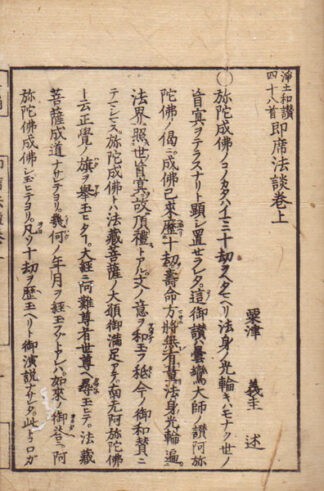 淨土和讃
四十八首
即席法談巻上
粟津 義圭 述
〇弥陀成佛ノコノカタハイマニ十劫ヲヘタマヘリ法身ノ光輪キハモナク世ノ
盲冥ヲテラスナリト顕シ置セラレタ。這御讃ハ曇鸞大師ノ讃阿弥
陀佛ノ偈ニ成佛已來歴十劫壽命方將無有量法身光輪遍
法界照世盲冥故頂禮トアル。文ノ意ヲ和玉フ。祗今ノ御和讃ニ
テマシマス。弥陀成佛トハ法藏菩薩ノ大願御満足アテ。南无阿弥陀佛
ト云正覺ノ旗ヲ舉玉ヒタ。大經ニ阿難尊者世尊ヘ尋玉ニテ。法藏
菩薩成道ナサセテヨリ。幾何ノ年月ヲ経玉フヤトアレハ如來ノ御答ニ阿
弥陀佛成佛シ玉ヒテヨリ。凡ソ十劫ヲ歴玉ヘリト御演説ナサレタ。此トコロガ